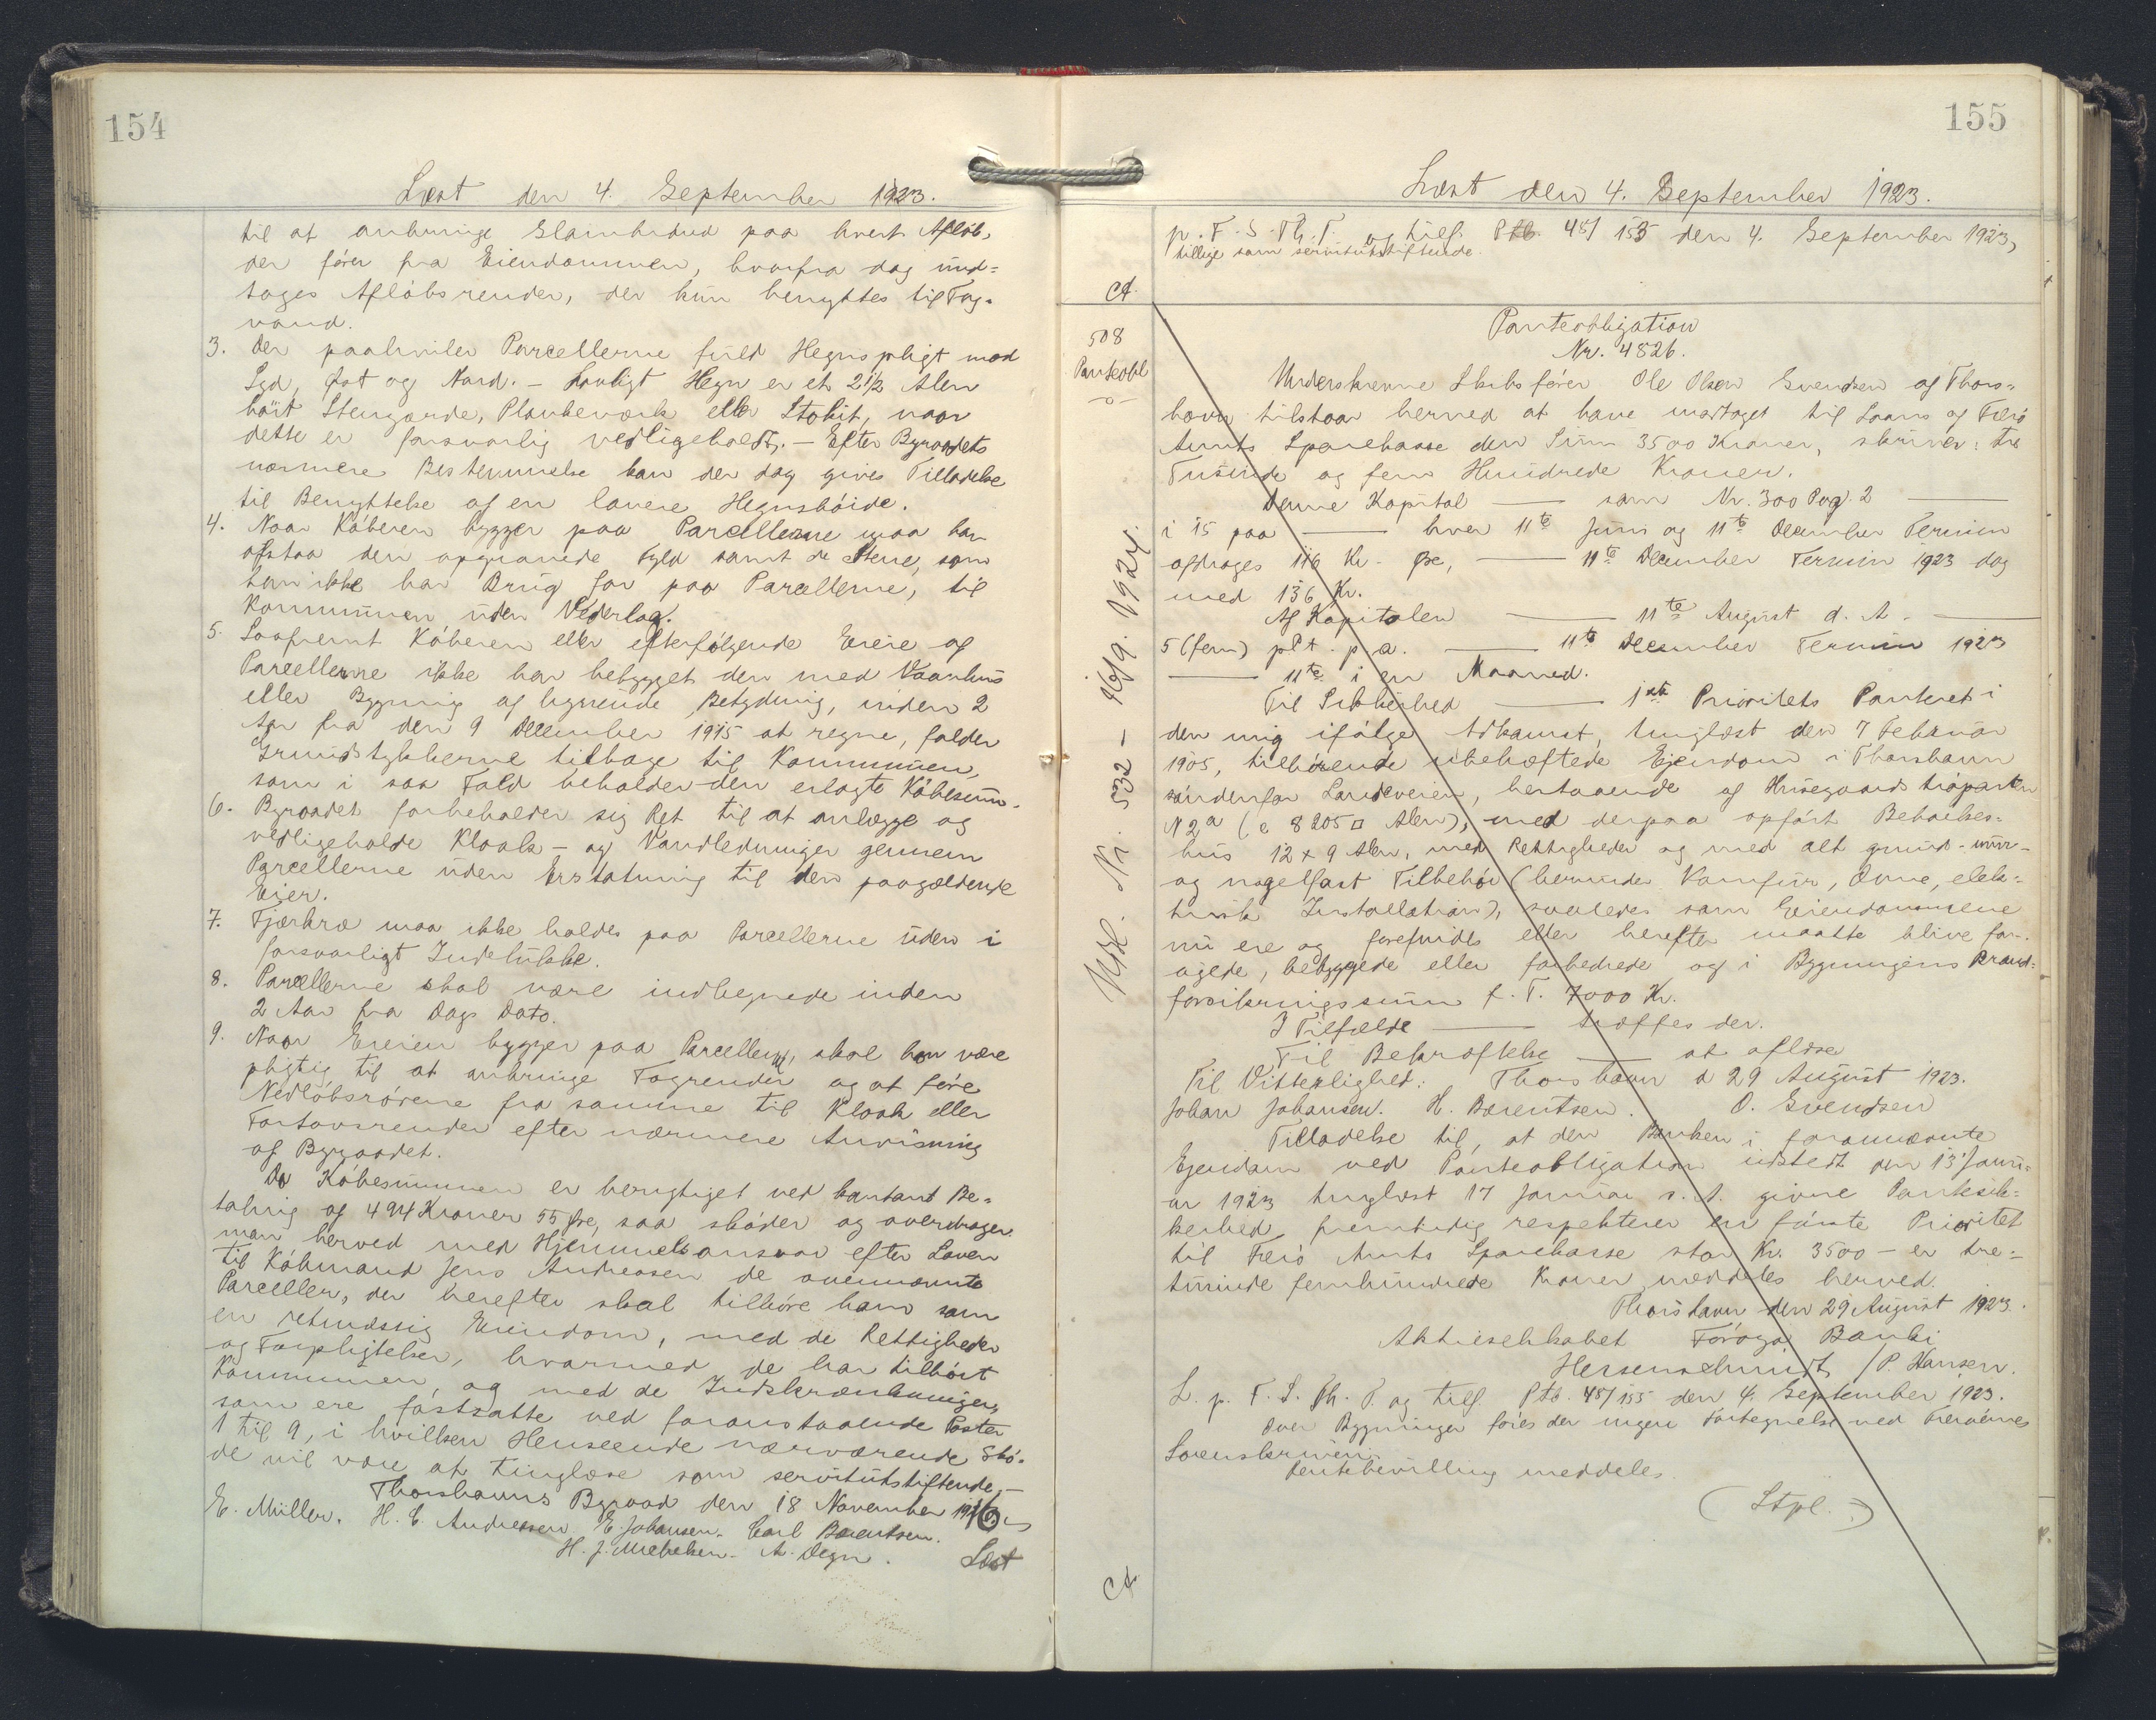 154
Læst den 4. September 1923.
til at anbringe Slambrønd paa hvert Afløb,
der fører fra Eiendommen, hvorfra dog und=
tages Afløbsrender, der kun benyttes til Tag=
vand.
3. Der paahviler Parcellerne fuld Hegnspligt mod
Syd, Øst og Nord. - Lovligt Hegn er et 2 1/2 Alen
høit Stengærde, Plankeværk eller Stakit, naar
dette er forsvarlig vedligeholdt. - Efter Byraadets
nærmere Bestemmelse kan der dog gives Tilladelse
til Benyttelse af en lavere Hegnshøide.
4. Naar Køberen bygger paa Parcellerne maa han
afstaa den opgravede Fyld samt de Stene, som
han ikke har Brug for paa Parcellerne, til
Kommunen uden Vederlag.
5. Saafremt Køberen eller efterfølgende Eiere af
Parcellerne ikke har bebygget den med Vaanhus
eller Bygning af lignende Betydning, inden 2
Aar fra den 9 December 1915 at regne, falder
Grundstykkerne tilbage til Kommunen,
som i saa Fald beholder den erlagte Købesum.
6. Byraadet forbeholder sig Ret til at anlægge og
vedligeholde Kloak- og Vandledninger gennem
Parcellerne uden Erstatning til den paagældende
Eier.
7. Fjærkræ maa ikke holdes paa Parcellerne uden i
forsvarligt Indelukke.
8. Parcellerne skal være indhegnede inden
2 Aar fra Dags Dato.
9. Naar Eieren bygger paa Parcellerne, skal han være
pligtig til at anbringe Tagrender og at føre
Nedløbsrørene fra samme til Kloak eller
Fortovsrender efter nærmere Anvisning
af Byraadet.
Da Købesummen er berigtiget ved kontant Be=
taling af 494 Kroner 55 Øre, saa skøder og overdrager
man herved med Hjemmelsansvar efter Loven
til Købmand Jens Andreasen de ovennævnte
Parceller, der herefter skal tilhøre ham som
en retmæssig Eiendom, med de Rettigheder
og Forpligtelser, hvormed de har tilhørt
Kommunen, og med de Indskrænkninger,
som ere fastsatte ved foranstaaende Poster
1 til 9, i hvilken Henseende nærværende Skø=
de vil være at tinglæse som servitutstiftende. -
Thorshavns Byraad den 18 November 1916.
E. Müller. H. C. Andreasen E. Johansen. Carl Bærentsen.
H. J. Mikkelsen. A. Degn. Læst
155
Læst den 4. September 1923.
p. F. S. Th. T. og tilf. Ptb. 48/155 den 4. September 1923,
tillige som servitutstiftende.
Ct.
508
Panteobl
Panteobligation
Nr. 4826.
Underskrevne Skibsfører Ole Olsen Svendsen af Thors=
havn tilstaar herved at have modtaget til Laans af Færø
Amts Sparekasse den Sum 3500 Kroner, skriver: tre
Tusinde og fem Hundrede Kroner.
Denne Kapital — som Nr. 300 Pag. 2 —
i 15 paa — hver 11te Juni og 11te December Termin
afdrages 116 Kr. Øre, — 11te December Termin 1923 dog
med 136 Kr.
Af Kapitalen — 11te August d. A. —
5 (fem) pCt. p. a. — 11te December Termin 1923
— 11te i en Maaned.
Til Sikkerhed — 1ste Prioritets Panteret i
den mig ifølge Adkomst, tinglæst den 7 Februar
1905, tilhørende ubehæftede Ejendom i Thorshavn
søndenfor Landeveien, bestaaende af Husegaards træparten
N 2a (c 8205 □ Alen), med derpaa opført Beboelses=
hus 12 x 9 Alen, med Rettigheder og med alt grund- mur-
og nagelfast Tilbehør (herunder Komfur, Ovne, elek=
trisk Installation), saaledes som Eiendommene
nu ere og forefindes eller herefter maatte blive for=
øgede, bebyggede eller forbedrede og i Bygningens Brand=
forsikringssum f. T. 7000 Kr.
I Tilfælde — træffes der.
Til Bekræftelse — at aflæse
Til Vitterlighed: Thorshavn d 29 August 1923.
Johan Johansen. H. Bærentsen. O. Svendsen
Tilladelse til, at den Banken i forannævnte
Ejendom ved Panteobligation udstedt den 13 Janu=
ar 1923 tinglæst 17 Januar s. A. givne Pantesik=
kerhed fremtidig respekterer en første Prioritet
til Færø Amts Sparekasse stor Kr. 3500 - er tre=
tusinde femhundrede Kroner meddeles herved.
Thorshavn den 29 August 1923.
Aktieselskabet Føroya Banki
/P. Hansen.
L. p. F. S. Th. T. og tilf. Ptb. 48/155 den 4. September 1923.
Over Bygninger føres der ingen Fortegnelse ved Færøernes
Sorenskriveri.
Rentebevilling meddeles.
(Stpl.)
Udsl. Nr. 532 - 16/9. 1924.
Ct.